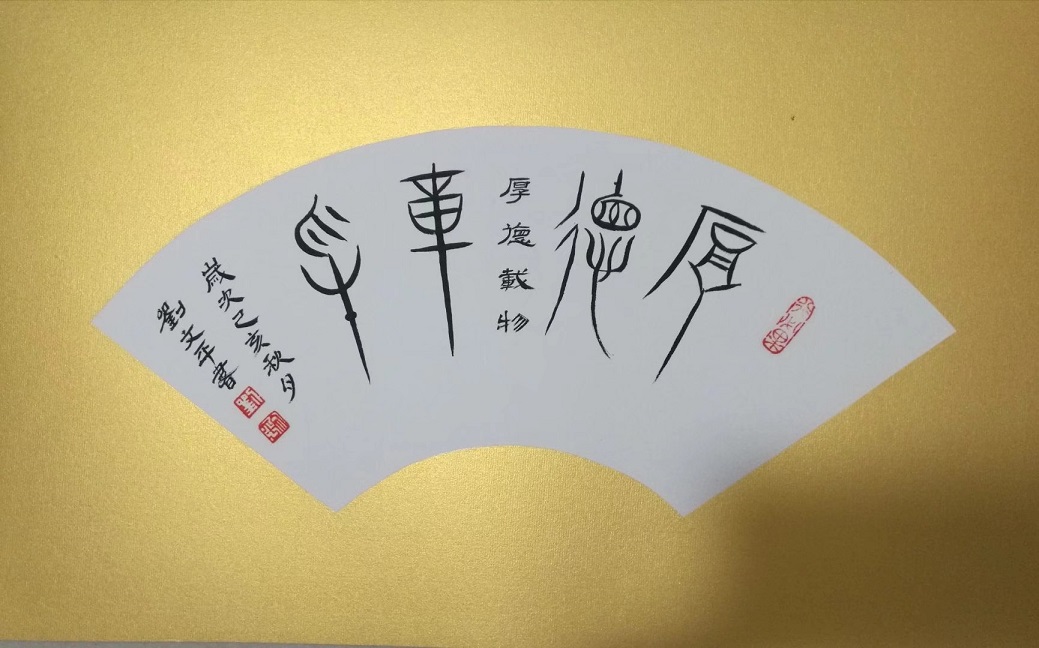 厚德載物
厚德載物
歲次己亥秋月
劉文平書